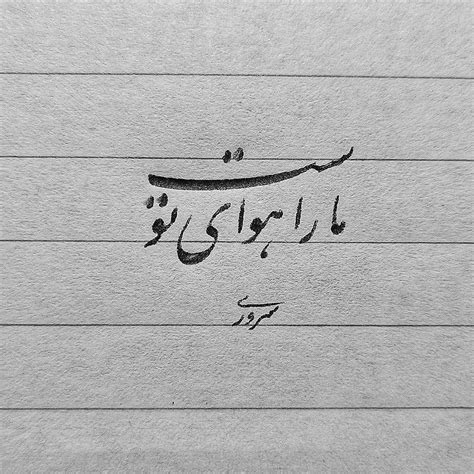 ما را هوای توست
سروری